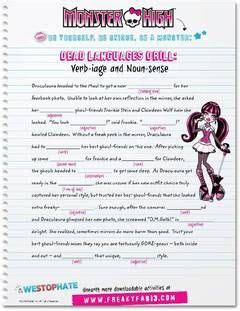 MONSTER HIGH
BE YOURSELF, BE UNIQUE, BE A MONSTER!
DEAD LANGUAGES DRILL:
Verb-iage and Noun-sense
Draculaura headed to the Maul to get a new for her
fearbook photo. Unable to look at her own reflection in the mirror, she asked
ghoul-friends Frankie Stein and Clawdeen Wolf how she
looked. "You look !" said Frankie. " !" added
howled Clawdeen. Without a freak peek in the mirrors, Draculaura
had to her best ghoul-friends on this one. After picking
up some for Frankie and a for Clawdeen,
the ghouls headed to to get some deep. As Draculaura got
ready in the she was unsure if her new outfit choice truly
captured her personal style, but her best ghoul-friends that she looked
extra freaky- . Sure enough, after the cameras and
and Draculaura glimpsed her own photo, she screamed "O.M.Ghoul!" in
delight. She realized, sometimes mirrors do more harm than good. Trust your
best ghoul-friends when they say you are torturously GORE-geous — both inside
and out!
WESTOPHATE
Unearth more downloadable activities at
WWW.FREAKYFAB13.COM